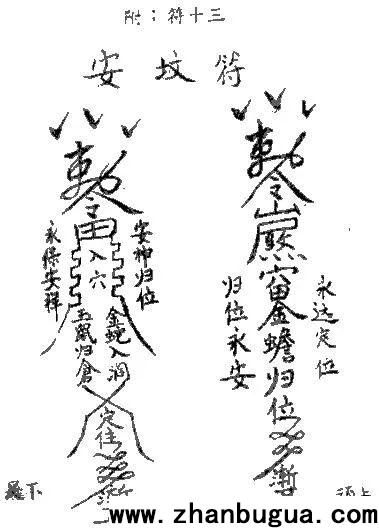 附：符十三
安坟符
敕令
安神归位
永保安祥
入穴
金蛇入洞
玉鼠归倉
定住
敕令
金蟾归位
永远定位
归位永安
www.zhanbugua.com